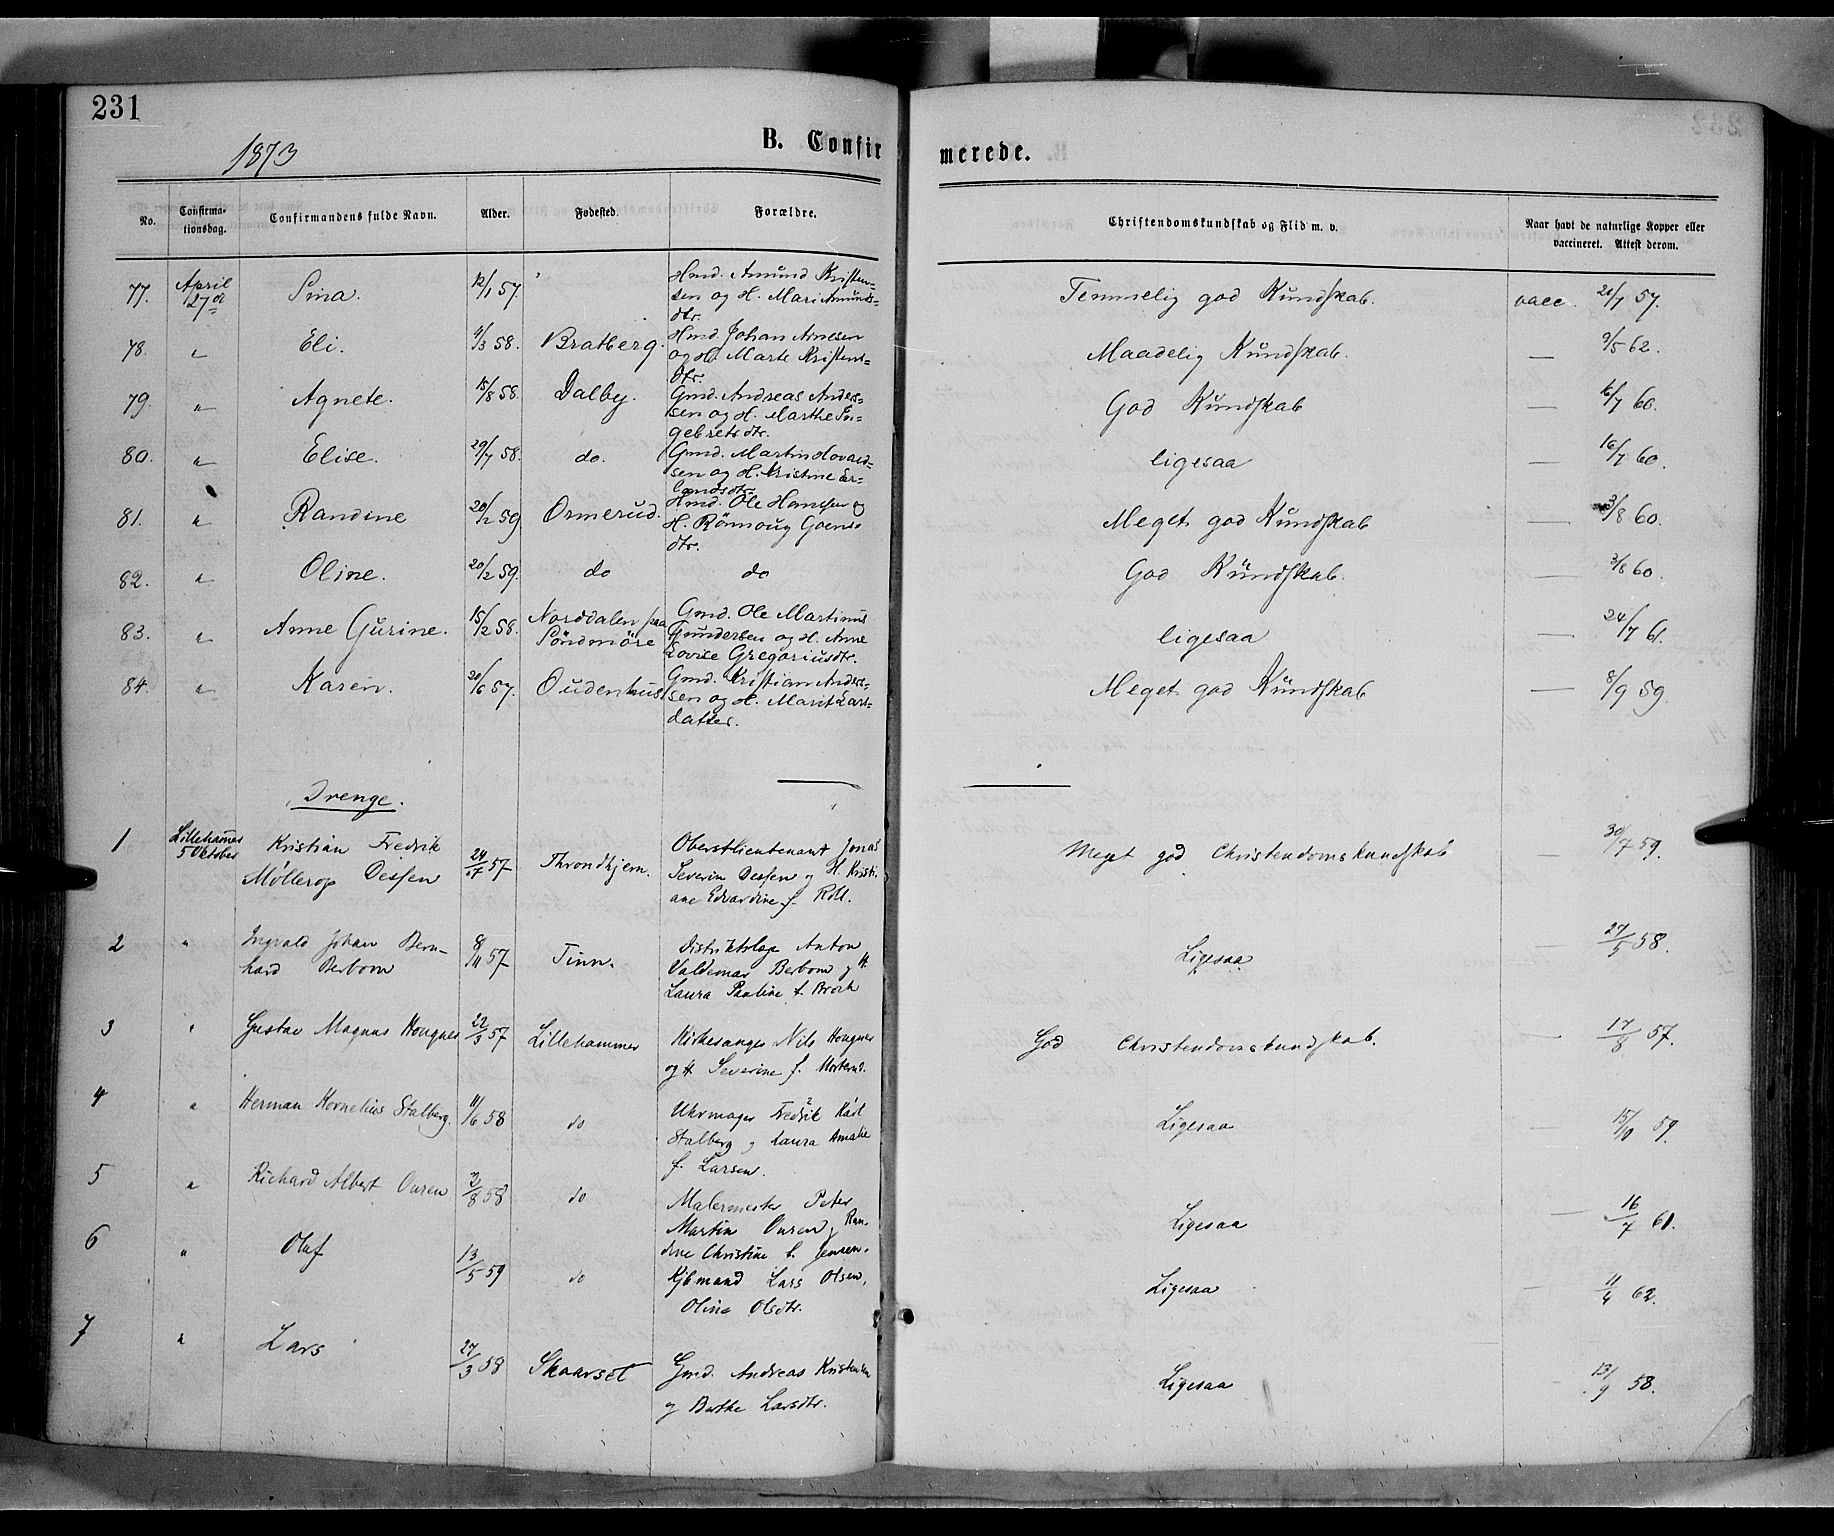 231
1873
B. Confirmerede.
No. Confirmationsdag. Confirmandens fulde Navn. Alder. Fødested. Forældre. Christendomskundskab og Flid m. v. Naar havt de naturlige Kopper eller vaccineret. Attest derom.
77. April 27de Sina. 12/1 57. Hmd. Amund Kristensen og H. Mari Amundsdtr. Temmelig god Kundskab. vacc. 20/7 57.
78. " Eli. 4/3 58. Bratberg. Hmd. Johan Arnesen og H. Marte Kristensdtr. Maadelig Kundskab. — 9/5 62.
79. " Agnete. 15/8 58. Dalby. Gmd. Andreas Anderssen og H. Marthe Ingebretsdtr. God Kundskab — 16/7 60.
80. " Elise. 29/7 58. do. Gmd. Martin Hovardsen og H. Kristine Erlandsdtr. ligesaa — 16/7 60.
81. " Randine 20/2 59. Ormerud. Hmd. Ole Hanssen og H. Rönnoug Goensdtr. Meget god Kundskab — 3/8 60.
82. " Oline. 20/2 59. do do God Kundskab. — 3/8 60.
83. " Anne Gurine. 15/2 58. Norddalen paa Söndmöre Gmd. Ole Martinus Gundersen og H. Anne Lovise Gregoriusdtr. ligesaa — 24/7 61.
84. " Karen. 20/6 57. Oudenhus Gmd. Kristian Anderssen og H. Marit Larsdatter. Meget god Kundskab — 8/9 59.
Drenge.
1 Lillehammer 5 Oktober Kristian Fredrik Møllerop Dessen 24/7 57 Throndhjem. Oberstlieutenant Jonas Severin Dessen og H. Kristiane Edvardine f. Roll. Meget god Christendomskundskab — 30/7 59.
2 " Ingvald Johan Bernhard Berbom 8/11 57 Tinn. Distriktslæge Anton Valdemar Berbom og H. Laura Pauline f. Broch Ligesaa — 27/5 58.
3 " Gustav Magnus Hougnes 22/3 57 Lillehammer Kirkesanger Nils Hougnes og H. Severine f. Mortens. God Christendomskundskab. — 17/8 57.
4 " Herman Kornelius Stalberg. 11/6 58 do Uhrmager Fredrik Karl Stalberg og Laura Amalie f. Larsen. Ligesaa — 15/10 59.
5 " Richard Albert Ouren 2/8 58 do Malermester Peter Martin Ouren og Randine Christine f. Jensen. Ligesaa — 16/7 61.
6 " Olaf 13/5 59 do Kjbmand Lars Olsen, Oline Olsdtr. Ligesaa — 11/4 62.
7 " Lars 27/3 58 Skaarset Gmd. Andreas Kristensen og Berthe Larsdtr. Ligesaa 13/9 58.